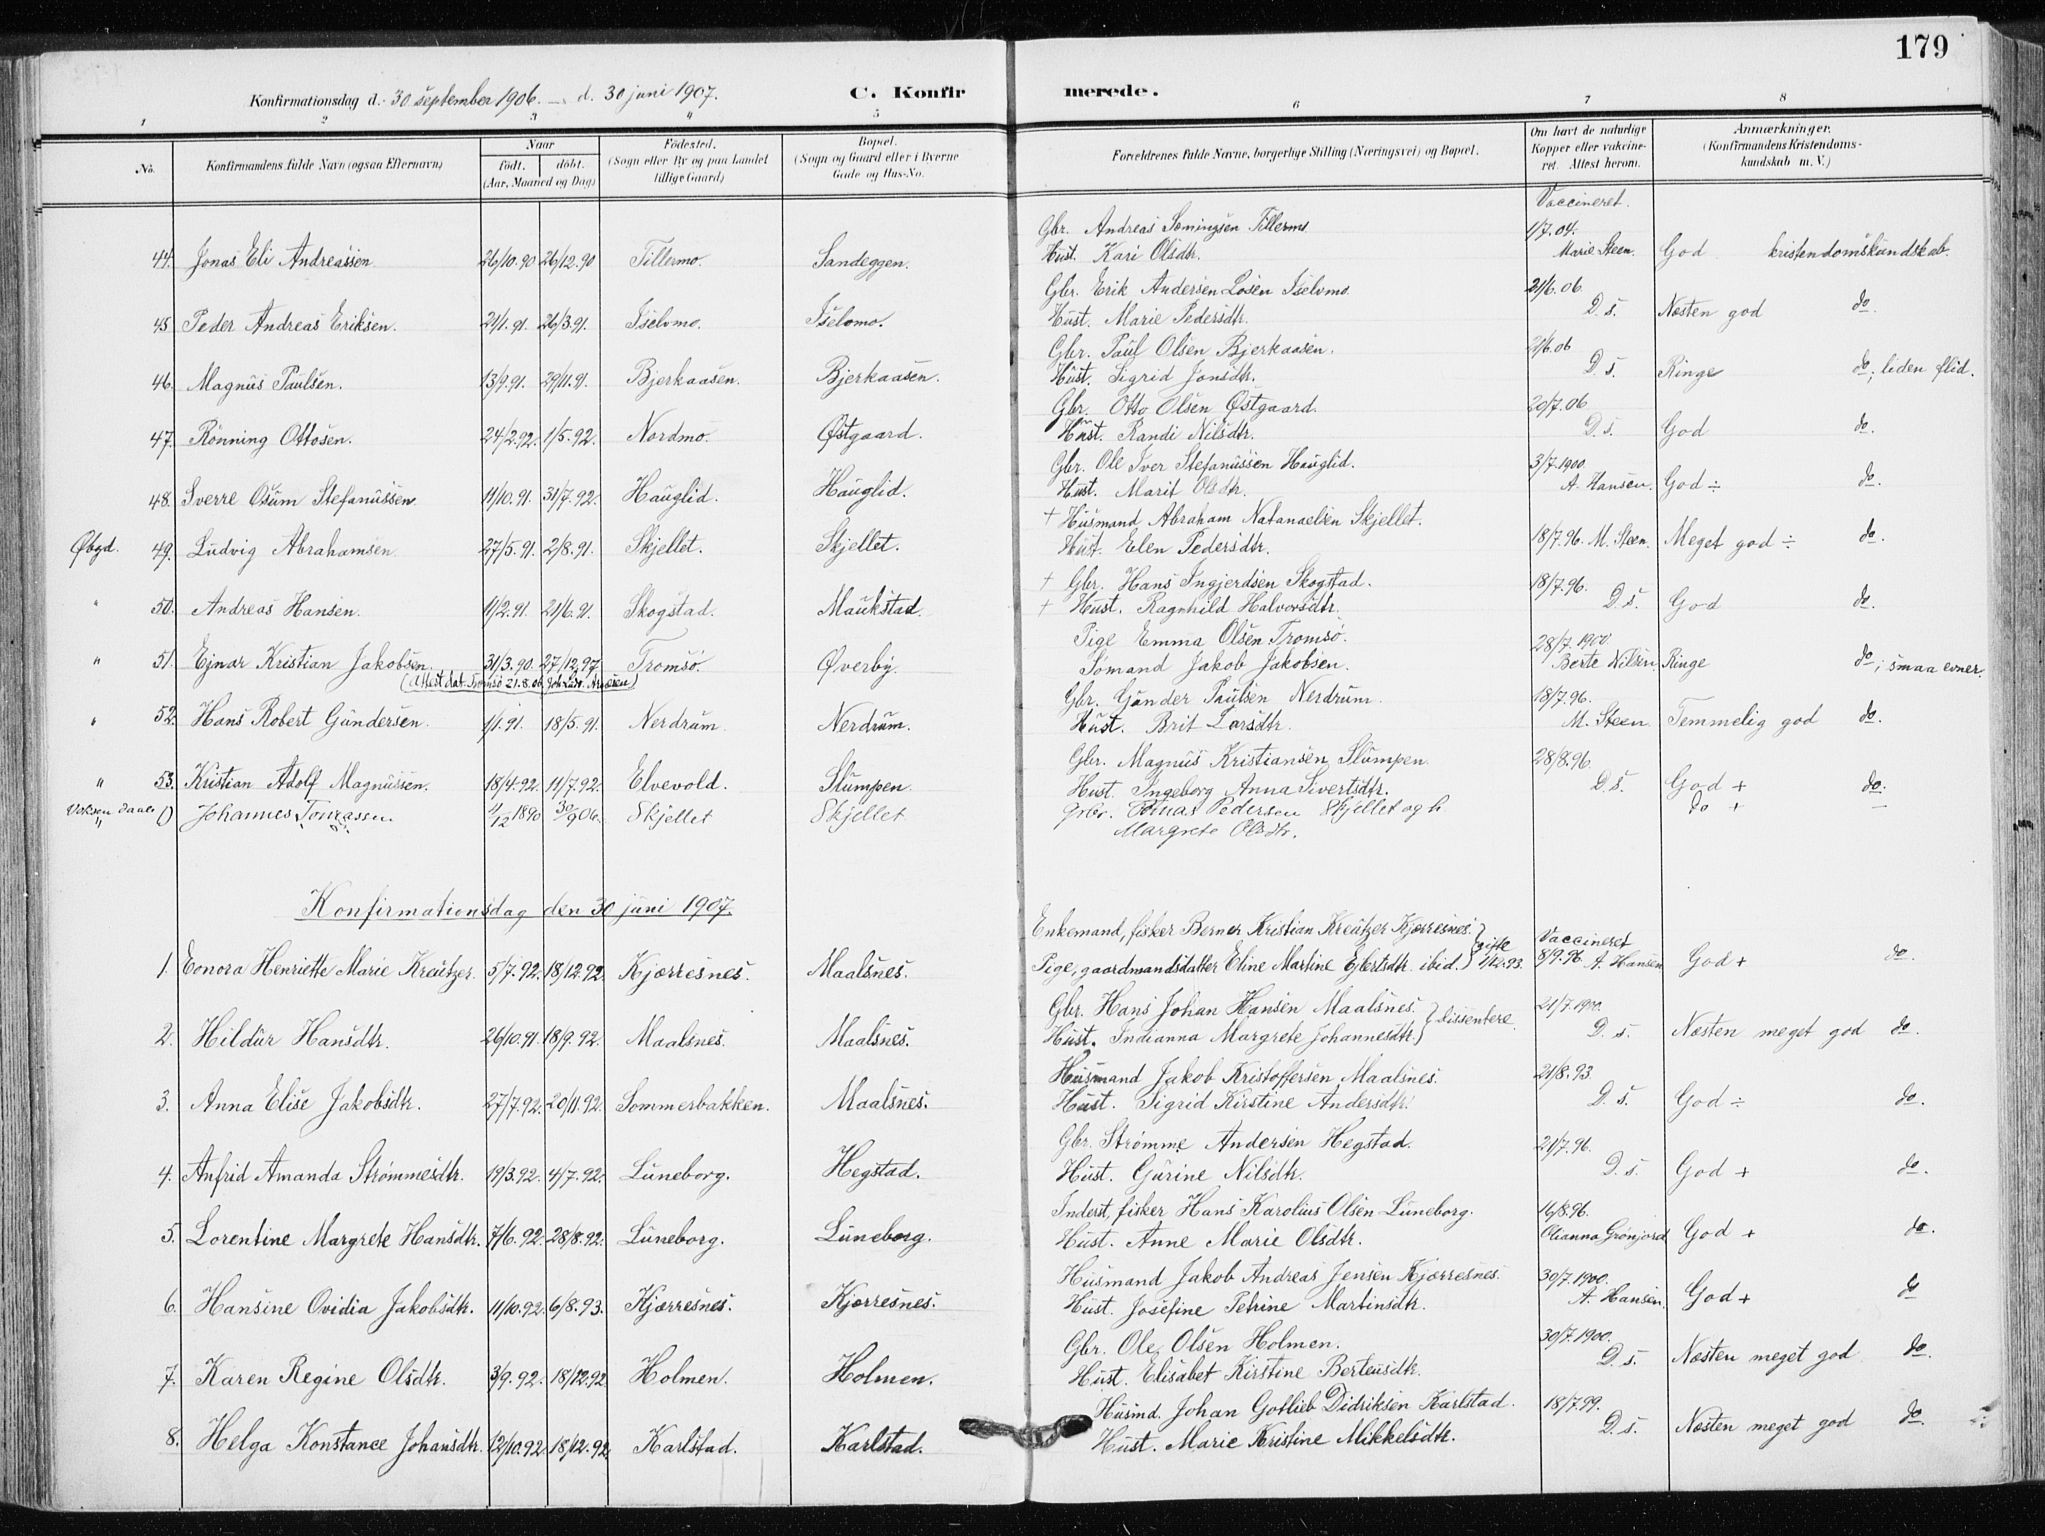 179
Konfirmationsdag d. 30 september 1906. — d. 30 juni 1907. C. Konfirmerede.
1 2 3 4 5 6 7 8
No.
Konfirmandens fulde Navn (ogsaa Efternavn)
Naar
födt. döbt.
(Aar, Maaned og Dag)
Födested.
(Sogn eller By og paa Landet
tillige Gaard)
Bopæl.
(Sogn og Gaard eller i Byerne
Gade og Hus-No.
Forældrenes fulde Navne, borgerlige Stilling (Næringsvei) og Bopæl.
Om havt de naturlige
Kopper eller vakcine-
ret. Attest herom.
Anmærkninger.
(Konfirmandens Kristendoms-
kundskab m. V.)
Vaccineret.
Gbr. Andreas Tillermo 1/7.04.
44. Jonas Eli Andreassen 26/10.90 26/12.90 Tillermo. Sandeggen. Hust. Kari Olsdtr. Marie Steen. God kristendomskundskab.
Gbr. Erik Andersen Losen Iselvmo. 21/6.06.
45 Peder Andreas Eriksen. 21/1.91. 26/3.91. Iselvmo. Iselvmo. Hust. Marie Pedersdtr. D. s. Næsten god do.
Gbr. Paul Olsen Bjerkaasen. 21/6.06
46. Magnus Paulsen. 13/9.91. 29/11.91. Bjerkaasen. Bjerkaasen. Hust. Sigrid Jonsdtr. D. s. Ringe do; liden flid.
Gbr. Otto Olsen Østgaard. 20/7.06
47. Rönning Ottosen. 24/2.92. 1/5.92. Nordmo. Østgaard. Hust. Randi Nilsdtr. D. s. God do.
Gbr. Ole Iver Stefanussen Hauglid. 3/7.1900.
48. Sverre Osum Stefanussen 11/10.91. 31/7.92. Hauglid. Hauglid. Hust. Marit Olsdtr. A. Hansen. God ÷ do.
+ Husmand Abraham Natanaelsen Skjellet.
Øbgd. 49. Ludvig Abrahamsen 27/5.91. 2/8.91. Skjellet. Skjellet. Hust. Elen Pedersdtr. 18/7.96. M. Steen. Meget god ÷ do.
+ Gbr. Hans Ingjerdsen Skogstad. 18/7.96.
" 50. Andreas Hansen. 11/2.91. 21/6.91. Skogstad. Maukstad. + Hust. Ragnhild Halvorsdtr. D. s. God do.
Pige Emma Olsen Tromsö. 28/7.1900
" 51. Ejnar Kristian Jakobsen. 31/3.90. 27/12.97 Tromsö. Øverby. Sömand Jakob Jakobsen. Berte Nilsen Ringe do; smaa evner.
(Attest dat. Tromsö 21.8.06
Gbr. Gunder Paulsen Nerdrum. 18/7.96.
" 52. Hans Robert Gundersen. 1/1.91. 18/5.91. Nerdrum. Nerdrum. Hust. Brit Larsdtr. M. Steen Temmelig god do.
Gbr. Magnus Kristiansen Slumpen. 28/8.96.
" 53. Kristian Adolf Magnussen. 18/4.92. 11/7.92. Elvevold. Slumpen. Hust. Ingeborg Anna Sivertsdtr. D. s. God + do.
Voksen daab Johannes Tomassen 1/12 1890 30/9 06. Skjellet Skjellet Grbr. Tomas Pedersen Skjellet og h. do + —
" Margrete Olsdtr.
Konfirmationsdag den 30 juni 1907.
Enkemand, fisker Berner Kristian Kreutzer Kjærresnes. gifte Vaccineret
1. Eonora Henriette Marie Kreutzer. 5/7.92. 18/12.92. Kjærresnes. Maalsnes. Pige, gaardmandsdatter Eline Martine Ejlertsdtr. ibid. 1/12.93. 8/9.96. A. Hansen God + do.
Gbr. Hans Johan Hansen Maalsnes. dissentere. 21/7.1900.
2. Hildur Hansdtr. 26/10.91. 18/9.92. Maalsnes. Maalsnes. Hust. Indianna Margrete Johannesdtr. D. s. Næsten meget god do.
Husmand Jakob Kristoffersen Maalsnes. 21/8.93.
3. Anna Elise Jakobsdtr. 27/7.92. 20/11.92. Sommerbakken. Maalsnes. Hust. Sigrid Kirstine Andersdtr. D. s. God ÷ do.
Gbr. Strømme Andersen Hegstad. 21/7.96.
4. Anfrid Amanda Strømmesdtr. 19/3.92. 4/7.92. Luneborg. Hegstad. Hust. Gurine Nilsdtr. D. s. God + do.
Inderst, fisker Hans Karolius Olsen Luneborg. 16/8.96.
5. Lorentine Margrete Hansdtr. 7/6.92. 28/8.92. Luneborg. Luneborg. Hust. Anne Marie Olsdtr. Olianna Grønjord God + do.
Husmand Jakob Andreas Jensen Kjærresnes. 30/7.1900.
6. Hansine Ovidia Jakobsdtr. 11/10.92. 6/8.93. Kjærresnes. Kjærresnes. Hust. Josefine Petrine Martinsdtr. A. Hansen. God + do
Gbr. Ole Olsen Holmen. 30/7.1900.
7. Karen Regine Olsdtr. 3/9.92. 18/12.92 Holmen. Holmen. Hust. Elisabet Kirstine Berteusdtr. D. s. Næsten meget god do.
Husmd. Johan Gotlieb Didriksen Karlstad. 18/7.99.
8. Helga Konstance Johansdtr. 12/10.92. 18/12.92. Karlstad. Karlstad. Hust. Marie Kristine Mikkelsdtr. D. s. Næsten meget god do